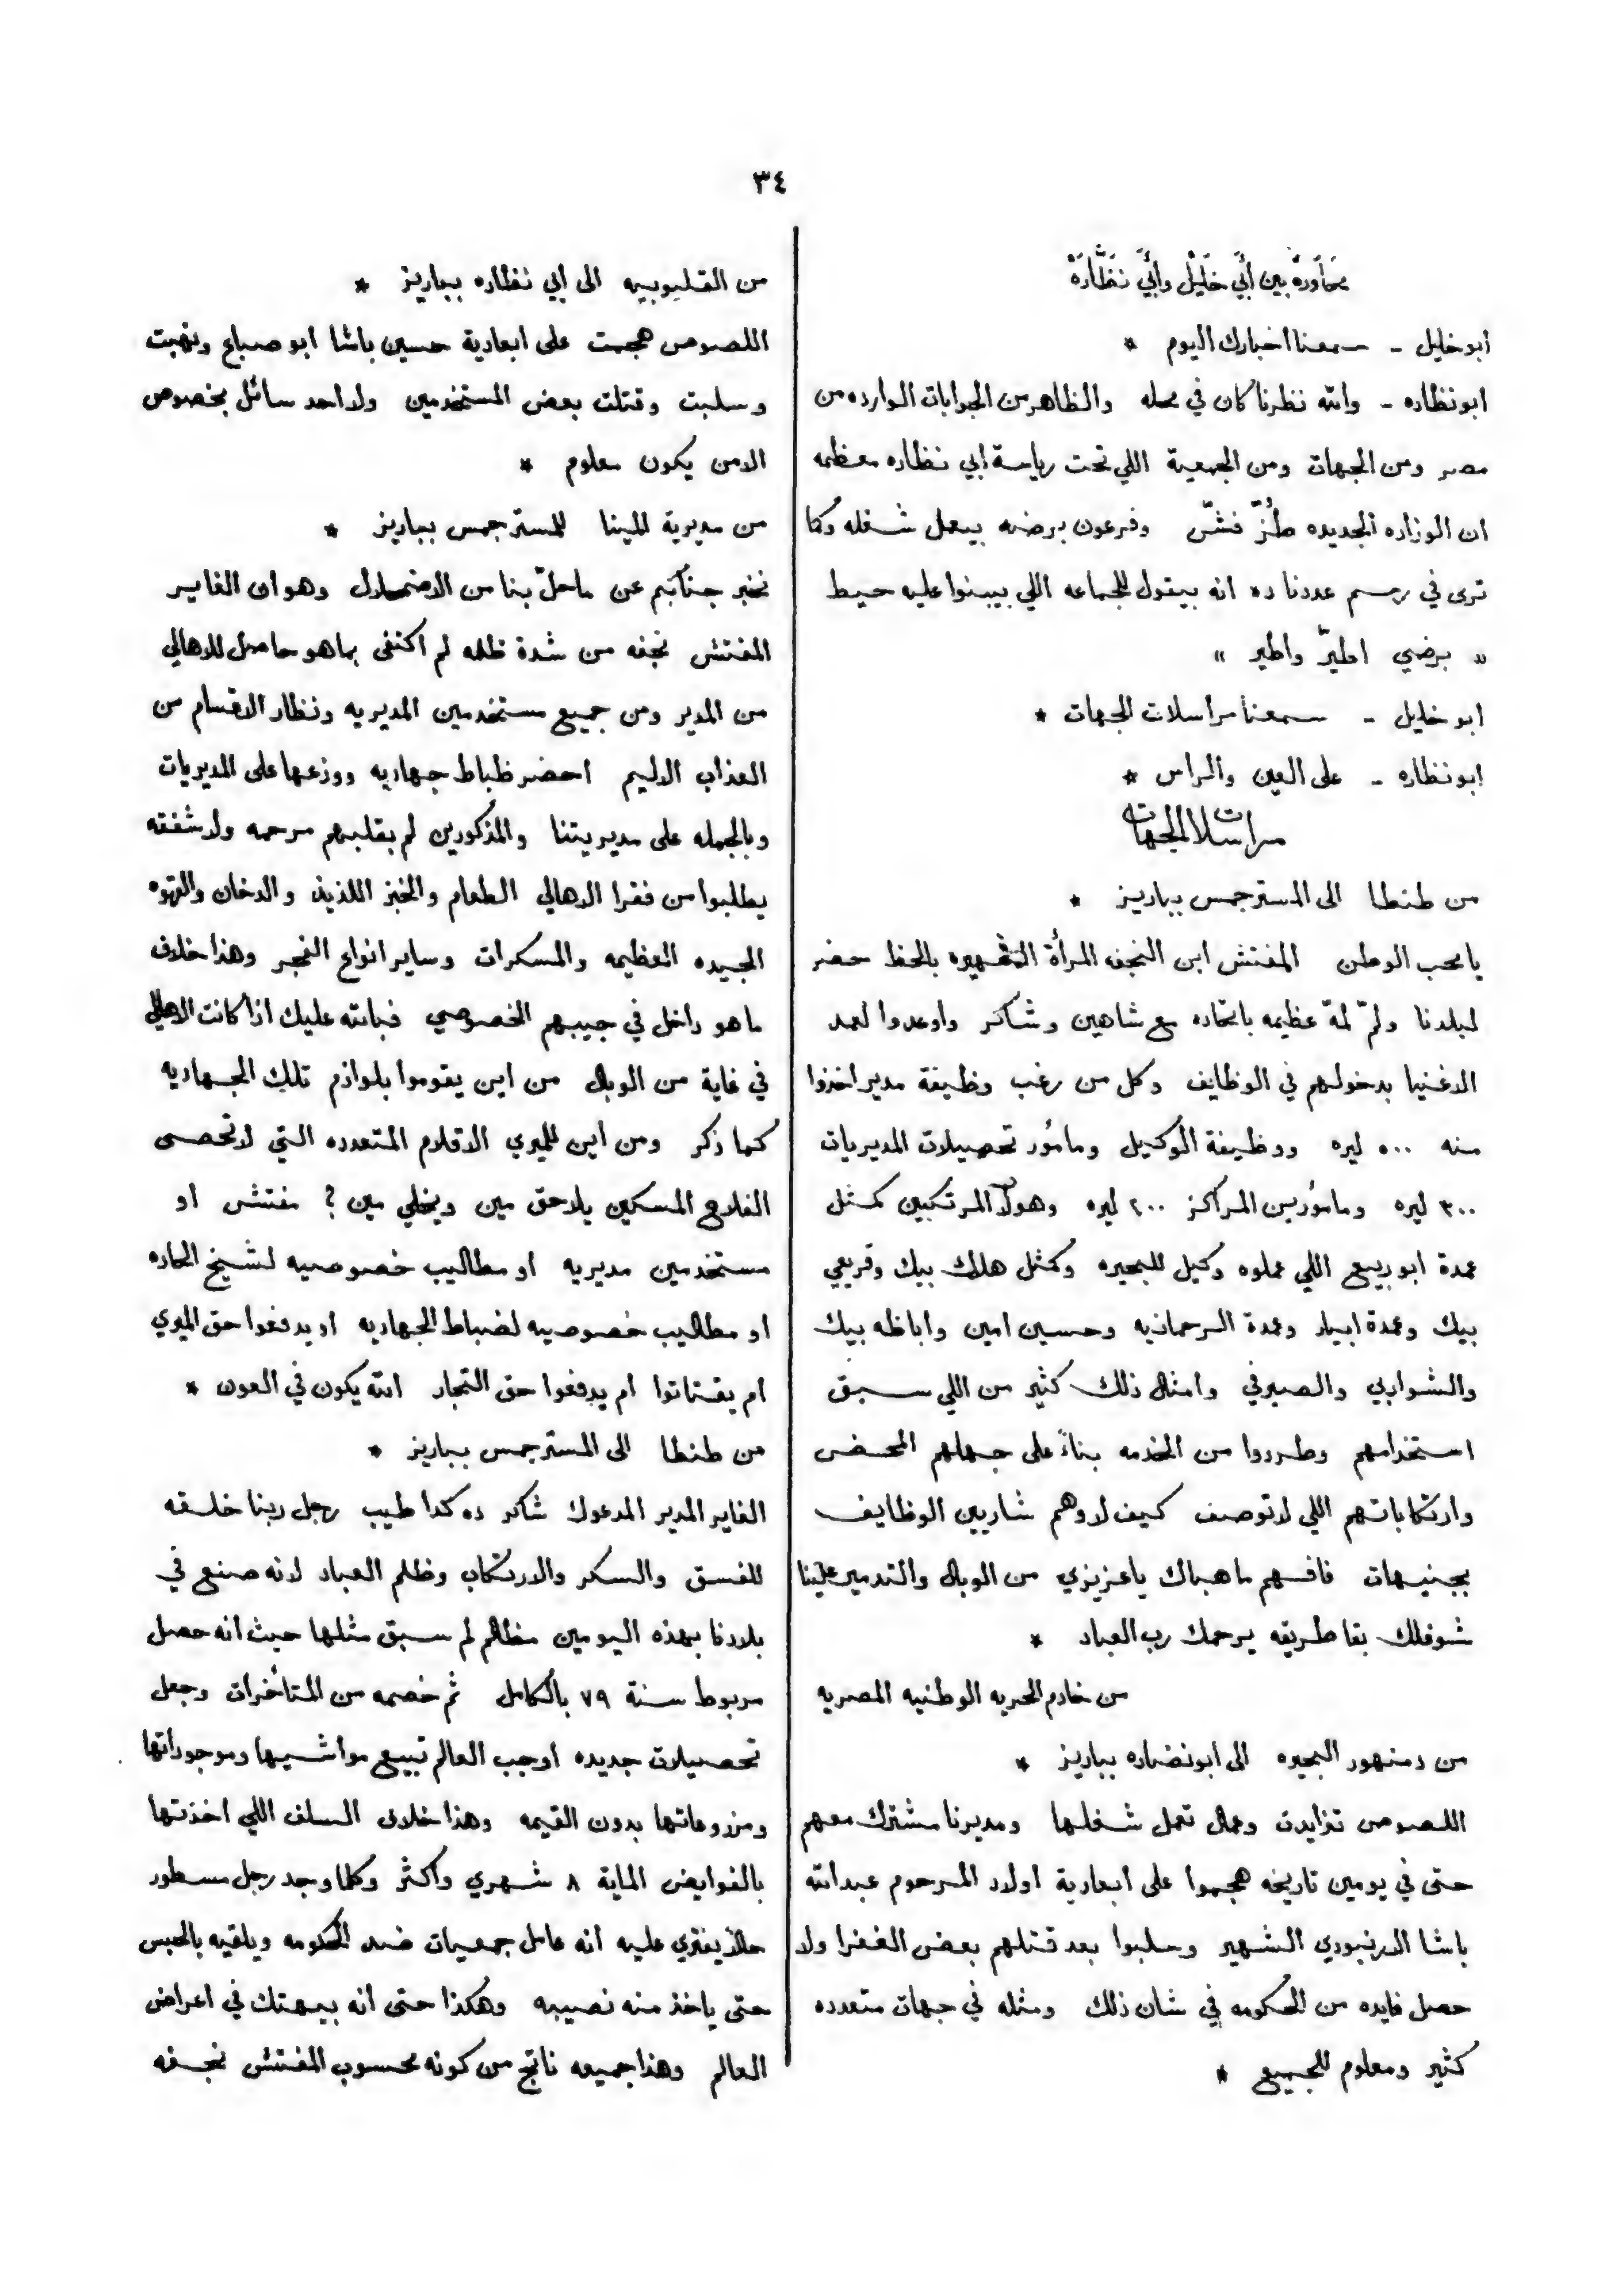 ٣٤
محاورة بين أبي خليل وأبي نظارة
أبو خليل - سمعنا اخبارك اليوم *
ابو نظاره - والله نظرنا كان في محله والظاهر من الجوابات الوارده من
مصر ومن الجهات ومن الجمعية اللي تحت رياسة ابي نظاره معظمه
ان الوزاره الجديده طُزّ فشّ وفرعون برضه بيعمل شغله وكما
ترى في رسم عددنا ده انه بيقول للجماعه اللي بيبنوا عليه حيط
« برضي اطيرّ واطير »
ابو خليل - سمعنا مراسلات الجهات *
ابو نظاره - على العين والراس *
مراسلات الجهات
من طنطا الى المستر جمس بباريز *
يا محب الوطن المفتش ابن النجفه المرأة الشهيره بالحظ حضر
لبلدنا ولمّ لمّة عظيمه باتحاده مع شاهين وشاكر واوعدوا لعمد
الاغنيا بدخولهم في الوظايف وكل من رغب وظيفة مدير اخذوا
منه ٥٠٠ ليره ووظيفة الوكيل ومأمور تحصيلات المديريات
٣٠٠ ليره ومامورين المراكز ٢٠٠ ليره وهولا المرتكبين كمثل
عمدة ابو ربيع اللي عملوه وكيل للبحيره وكمثل هلال بيك وقريعي
بيك وعمدة ابيار وعمدة الرحمانيه وحسين امين واباظه بيك
والشواربي والصيرفي وامثال ذلك كثير من اللي سبق
استخدامهم وطردوا من الخدمه بناءً على جهلهم المحض
وارتكاباتهم اللي لا توصف كيف لا وهم شاريين الوظايف
بجنيهات فافهم ما هباك يا عزيزي من الوبال والتدمير علينا
شوفلك بقا طريقه يرحمك رب العباد *
من خادم الحريه الوطنيه المصريه
من دمنهور البحيره الى ابو نضاره بباريز *
اللصوص تزايدت وعمال تعمل شغلها ومديرنا مشترك معهم
حتى في يومين تاريخه هجموا على ابعادية اولاد المرحوم عبدالله
باشا الارنبودي الشهير وسلبوا بعد قتلهم بعض الغفرا ولا
حصل فايده من الحكومه في شان ذلك ومثله في جهات متعدده
كثير ومعلوم للجميع *
من القليوبيه الى ابي نظاره بباريز *
اللصوص هجمت على ابعادية حسين باشا ابو صباع ونهبت
وسلبت وقتلت بعض المستخدمين ولا احد سائل بخصوص
الامن يكون معلوم *
من مديرية المينا للمستر جمس بباريز *
نخبر جنابكم عن ما حلّ بنا من الاضمحلال وهو ان الفاير
المفتش نجفه من شدة ظلمه لم اكتفى بما هو حاصل للاهالي
من المدير ومن جميع مستخدمين المديريه ونظار الاقسام من
العذاب الاليم احضر ظباط جهاديه ووزعها على المديريات
وبالجمله على مديريتنا والمذكورين لم بقلبهم مرحمه ولا شفقه
يطلبوا من فقرا الاهالي الطعام والخبز اللذيذ والدخان والقهوه
الجيده العظيمه والمسكرات وساير انواع الفجر وهذا خلاف
ما هو داخل في جيبهم الخصوصي فبالله عليك اذا كانت الاهالي
في غاية من الوبال من اين يقوموا بلوازم تلك الجهاديه
كما ذكر ومن اين للميري الاقلام المتعدده التي لا تحصى
الفلاح المسكين يلاحق مين ويخلي مين ? مفتش او
مستخدمين مديريه او مطاليب خصوصيه لشيخ الحاره
او مطاليب خصوصيه لضباط الجهاديه او يدفعوا حق الميري
ام يقتاتوا ام يدفعوا حق التجار الله يكون في العون *
من طنطا الى المستر جمس بباريز *
الفاير المدير المدعوك شاكر ده كدا طيب رجل ربنا خلقه
للفسق والسكر والارتكاب وظلم العباد لانه صنع في
بلادنا بهذه اليومين مظالم لم سبق مثلها حيث انه حصل
مربوط سنة ٧٩ بالكامل ثم خصمه من المتأخرات وجعل
تحصيلات جديده اوجب العالم تبيع مواشيها وموجوداتها
ومزروعاتها بدون القيمه وهذا خلاف السلف اللي اخذتها
بالفوايض الماية ٨ شهري واكثر وكلما وجد رجل مسطور
حالاً يفتري عليه انه عامل جمعيات ضد الحكومه ويلقيه بالحبس
حتى ياخذ منه نصيبه وهكذا حتى انه بيهتك في اعراض
العالم وهذا جميعه ناتج من كونه محسوب المفتش نجفه